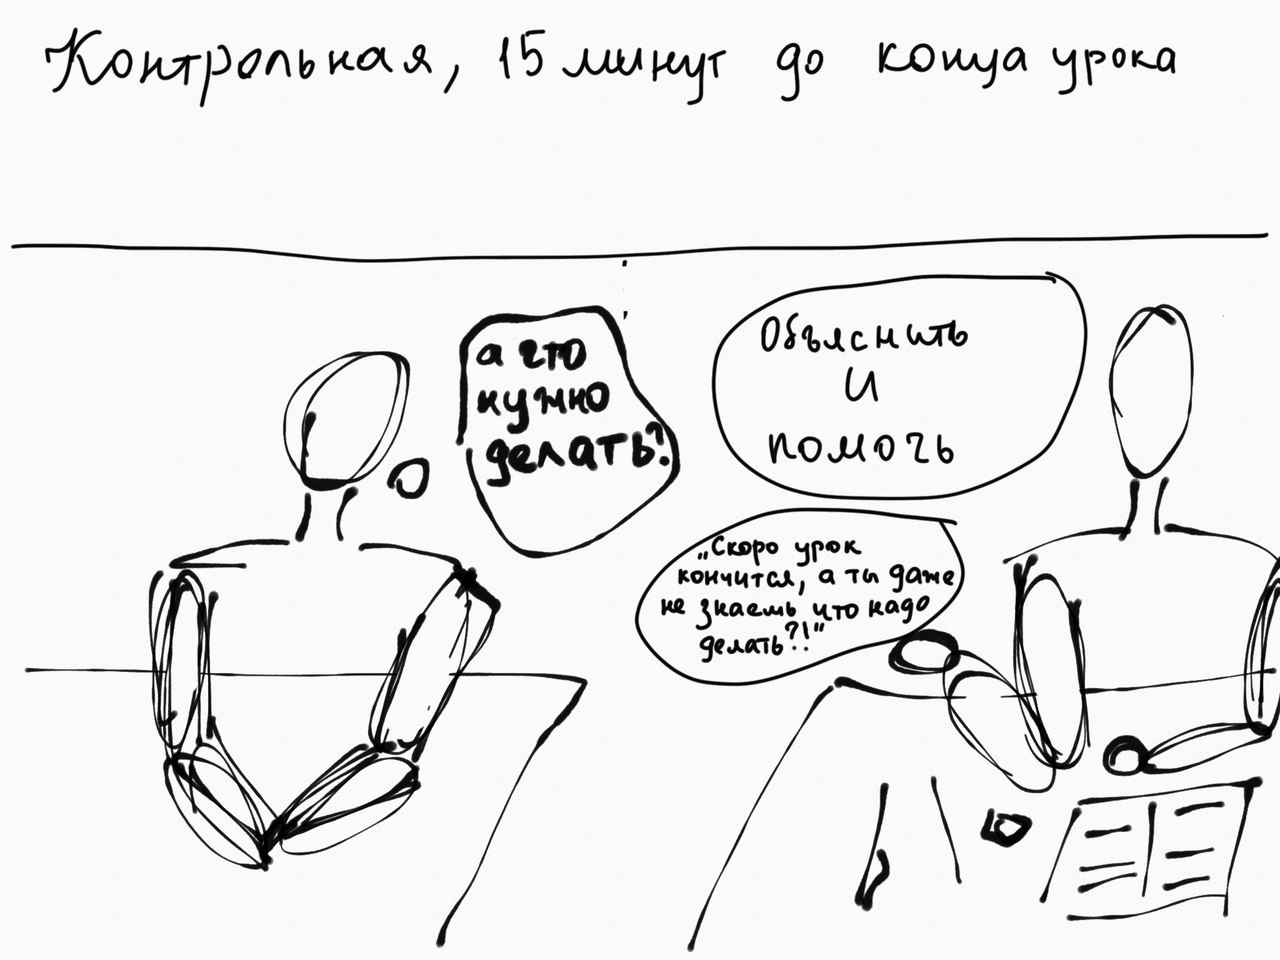 Контрольная, 15 минут до конца урока
а что
нужно
делать?
Объяснить
и
помочь
„Скоро урок
кончится, а ты даже
не знаешь что надо
делать?!"